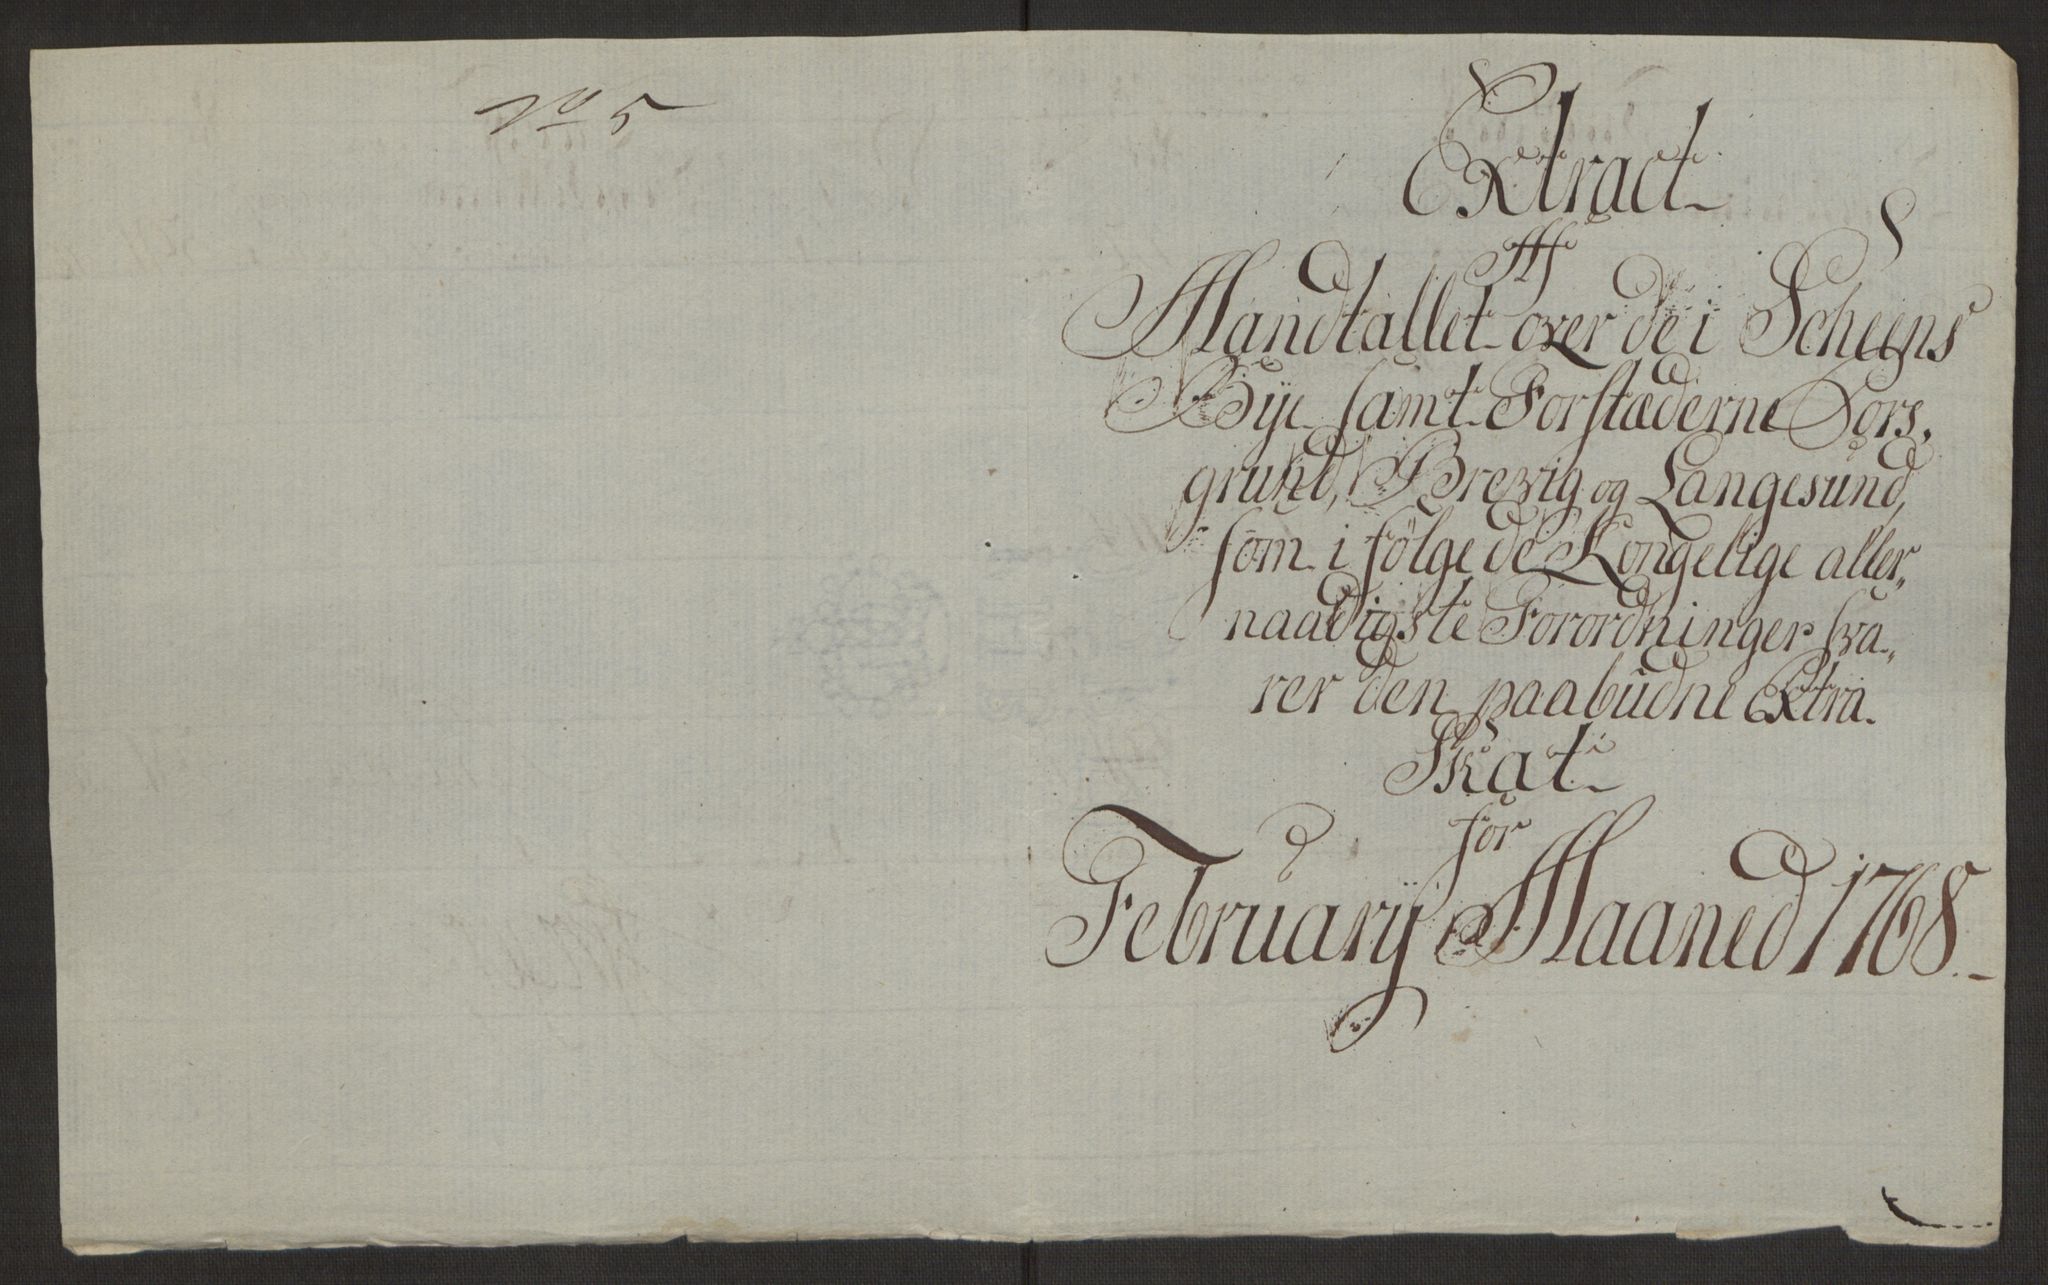 No 5
Extract
Af
Mandtallet over de i Scheens
Bye samt Forstæderne Pors,
grund, Brevig og Langesund,
som i følge de Kongelige aller„
naadigste Forordninger sva„
rer den paabudne Extra
Skat
for
February Maaned 1768.